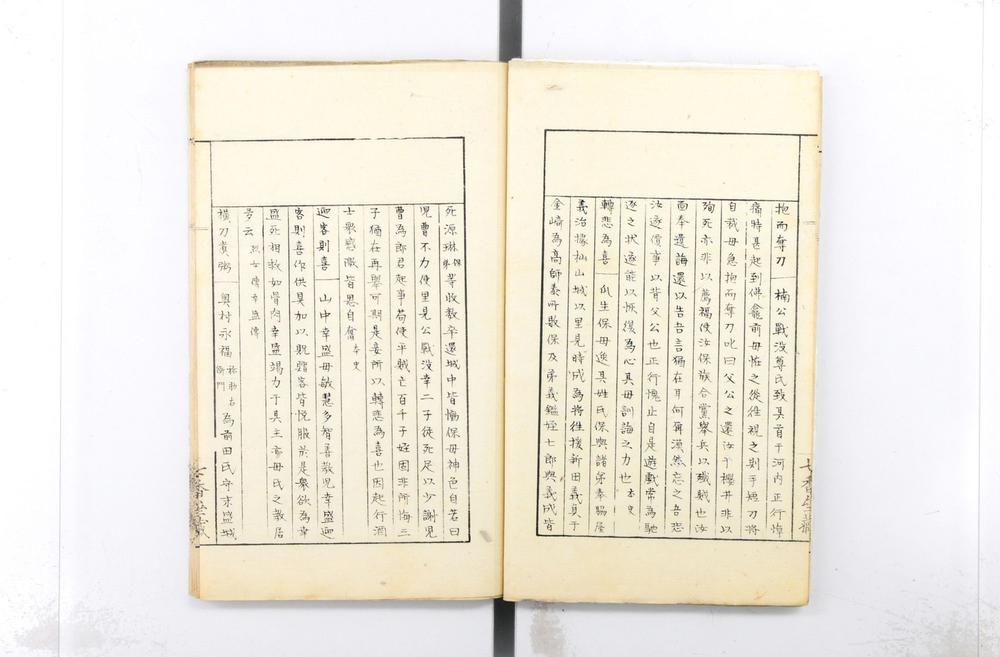 抱而奪刀 楠公戰没尊氏致其首于河内正行悼
痛特甚起到佛龕前母怪之從往視之則手短刀將
自裁母急抱而奪刀叱曰父公之還汝于櫻井非以
殉死亦非以薦福使汝保族合黨舉兵以殲賊也汝
面奉遺誨還以告吾言猶在耳何爲漠然忘之吾恐
汝遂僨事以背父公也正行愧止自是遊戲常為馳
逐之状遂能以恢復為心其母訓誨之力也 本史
轉悲為喜 瓜生保母逸其姓氏保與諸弟奉脇屋
義治據杣山城以里見時成為將往援新田義貞于
金﨑為高師泰所敗保及弟義鑑姪七郎與義成皆
死源琳保弟等收敗卒還城中皆慟保母神色自若曰
児曹不力使里見公戰没幸二子從死足以少謝児
曹為郎君起事苟使平賊亡百千子姪固非所悔三
子猶在再舉可期是妾所以轉悲為喜也因起行酒
士衆感激皆思自奮 本史
迎客則喜 山中幸盛母敏慧多智善教児幸盛迎
客則喜作供具加以
客皆悦服於是衆欲為幸
盛死相救如骨肉幸盛竭力于其主亦母氏之教居
多云 烈女傳幸盛傳
横刀煮粥 奥村永福助右衛門為前田氏守末盛城